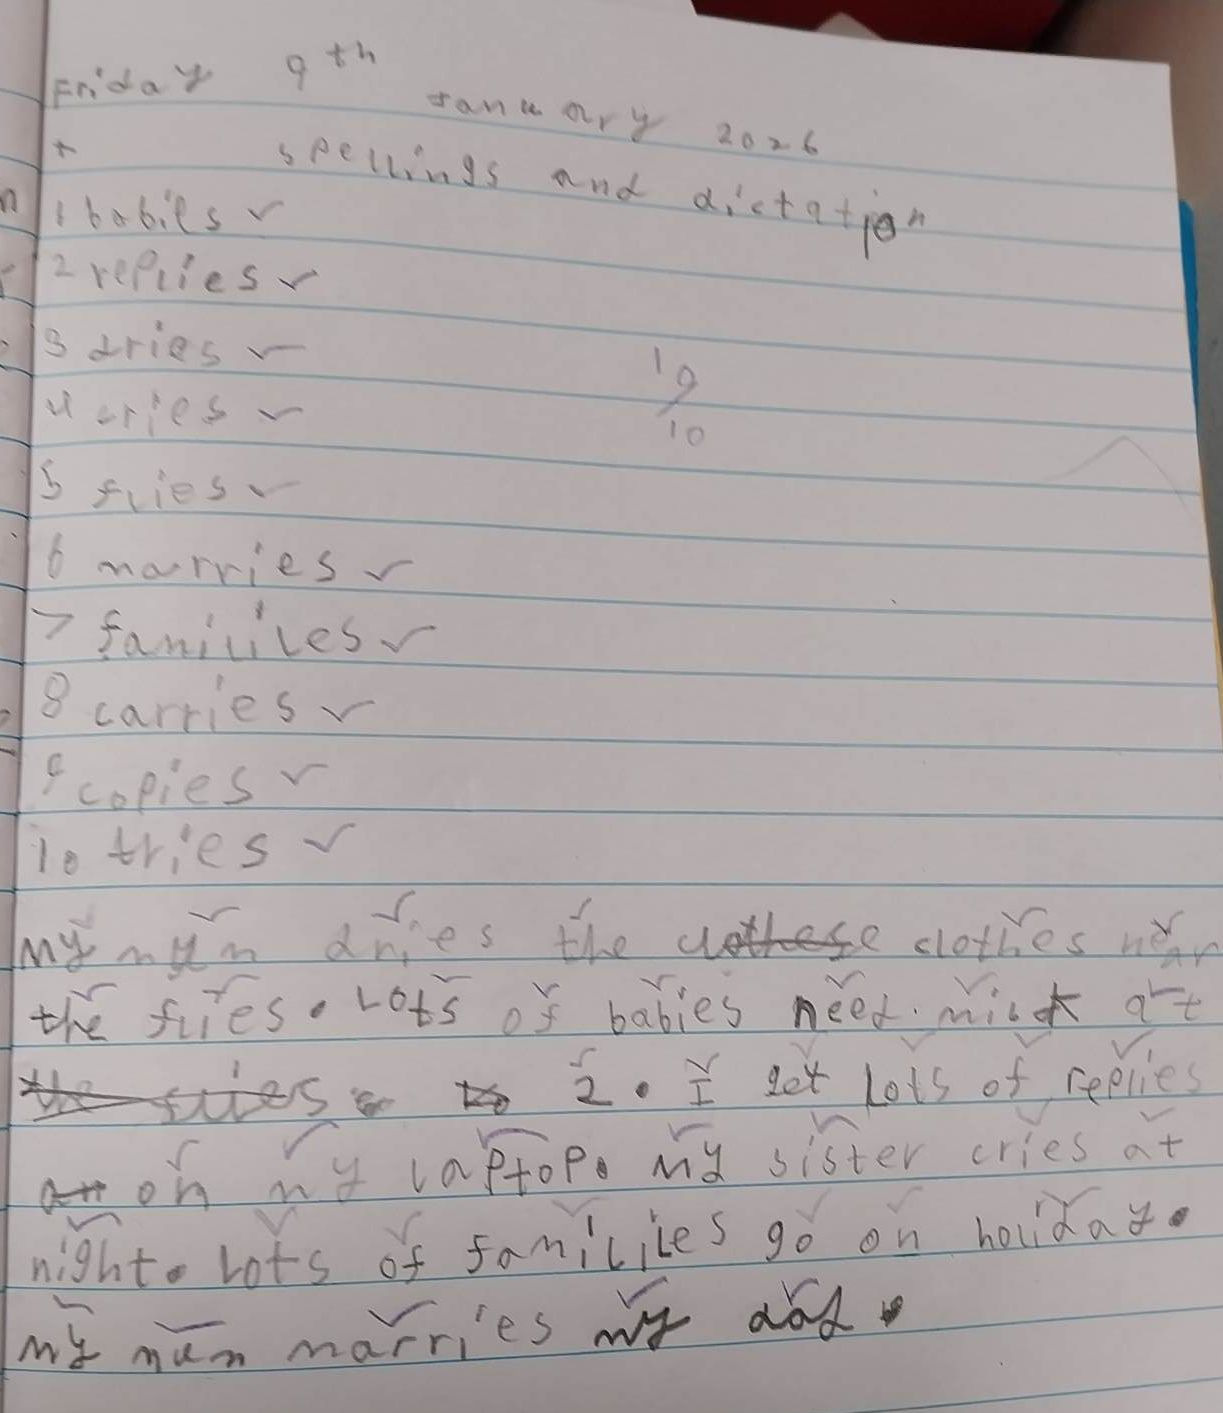 Friday 9th January 2026
spellings and dictation
1 babils ✓
2 replies ✓
3 dries ✓
4 cries ✓
10
10
5 flies ✓
6 marries ✓
7 famililes ✓
8 carries ✓
9 copies ✓
10 tries ✓
My mum dries the clothese clothes near
the flies. Lots of babies need milk at
the flies 2. I get lots of replies
on my laptop. My sister cries at
night. Lots of famililes go on holiday.
My mum marries my dad.